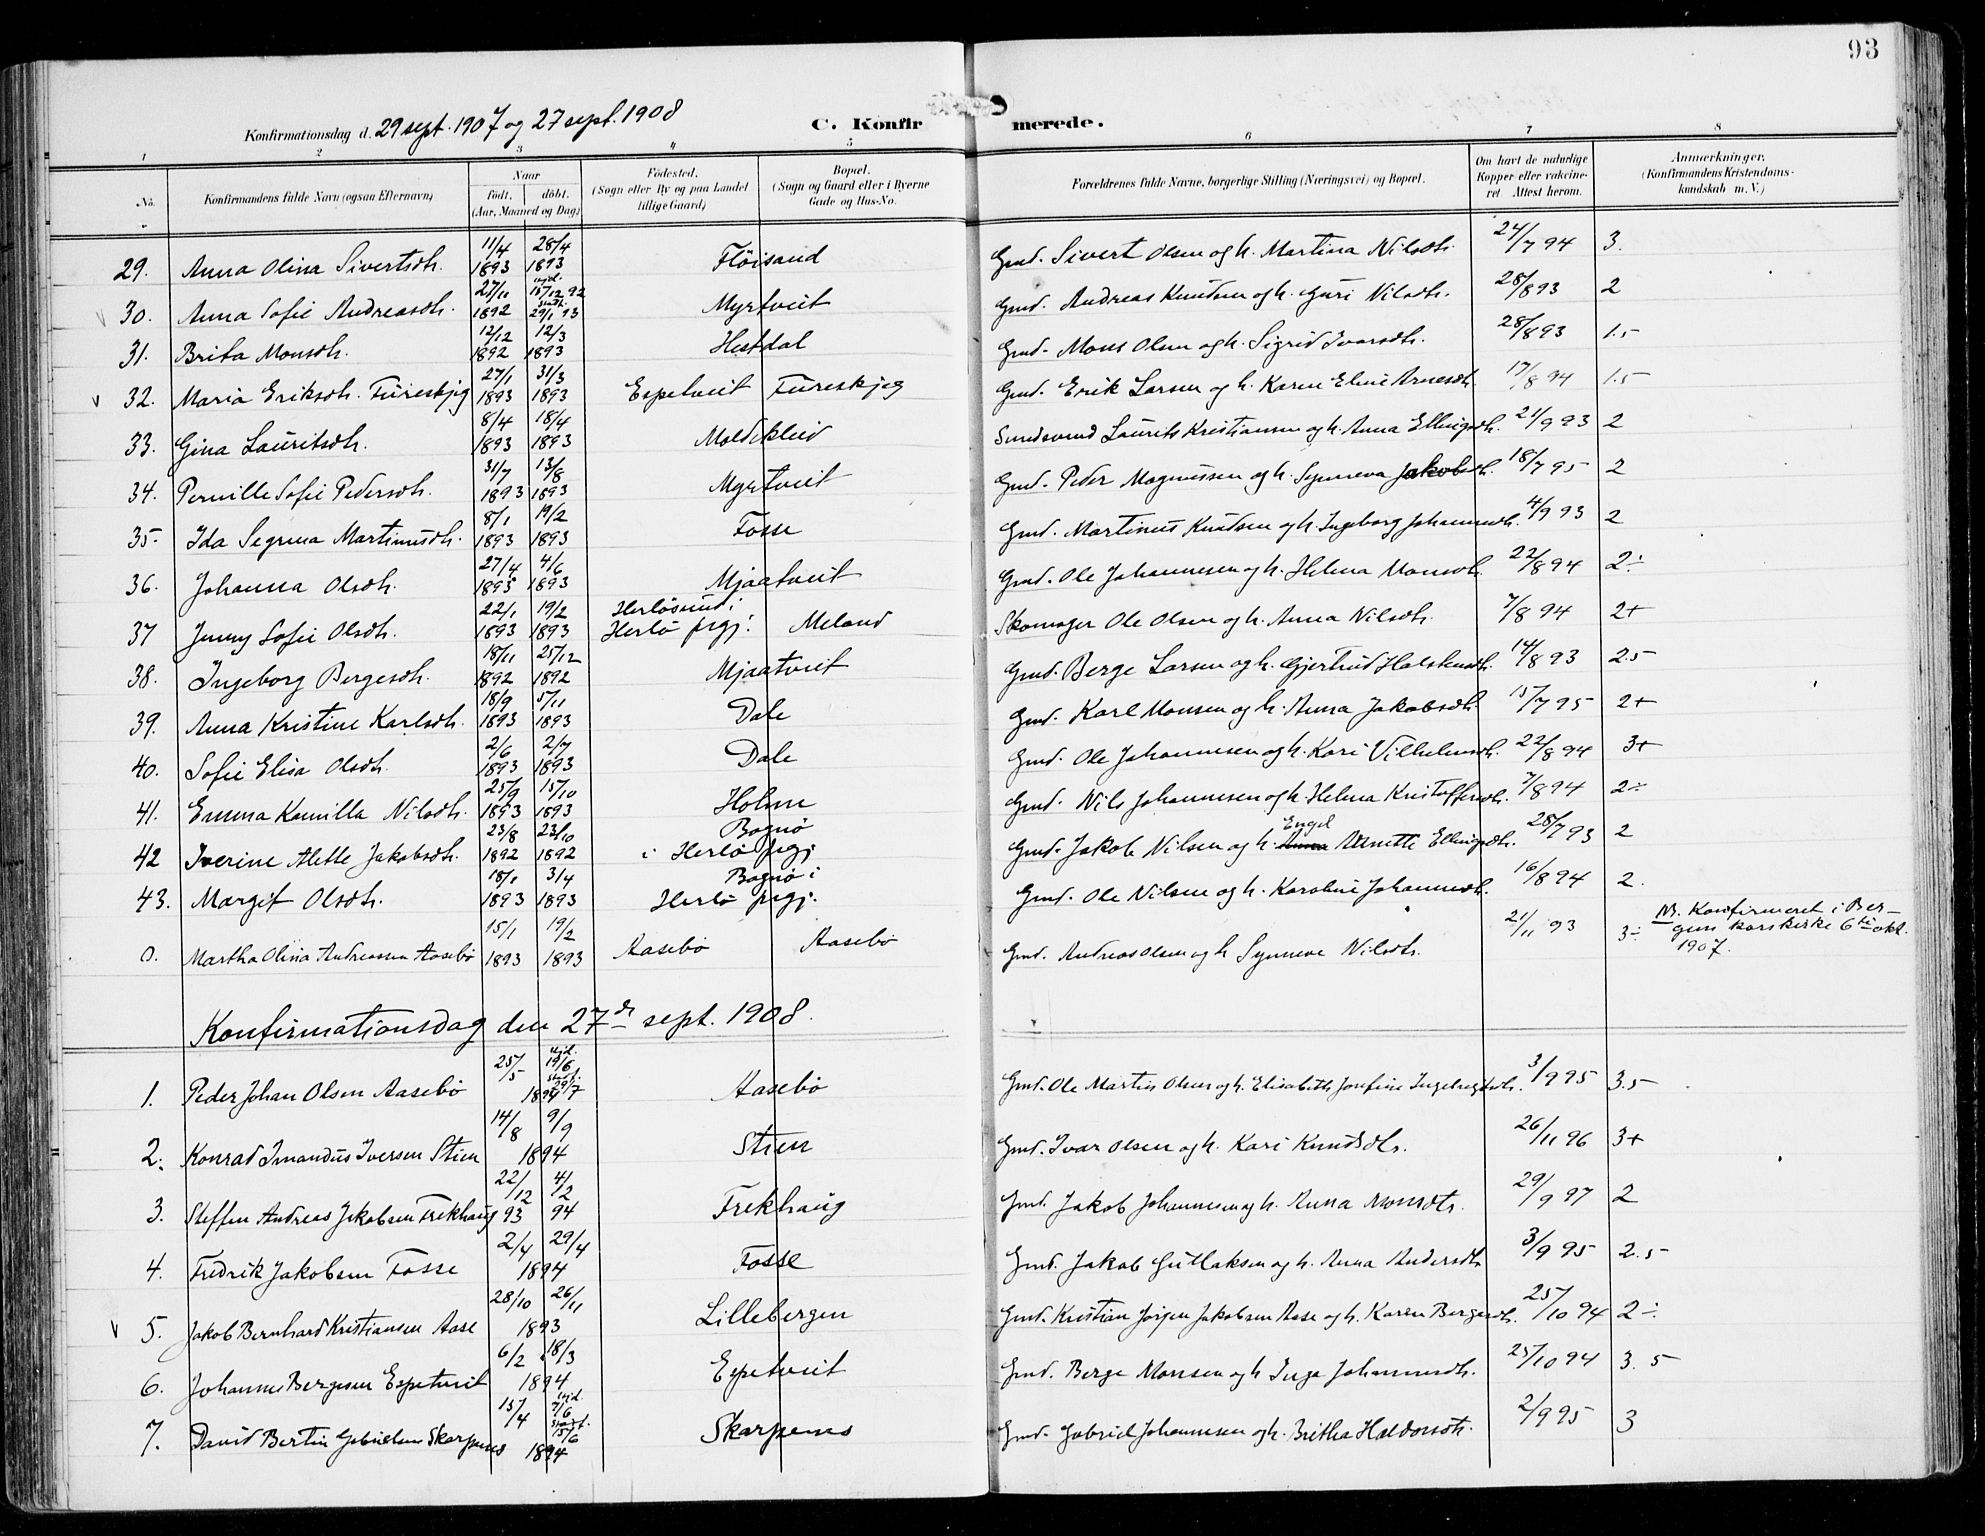 93
Konfirmationsdag d. 29 sept. 1907 og 27 sept. 1908
C. Konfirmerede.
1 2 3 4 5 6 7 8
No. Konfirmandens fulde Navn (ogsaa Efternavn) Naar födt. döbt. (Aar, Maaned og Dag) Födested. (Sogn eller By og paa Landet tillige Gaard) Bopæl. (Sogn og Gaard eller i Byerne Gade og Hus-No. Forældrenes fulde Navne, borgerlige Stilling (Næringsvei) og Bopæl. Om havt de naturlige Kopper eller vakcineret Attest herom. Anmærkninger. (Konfirmandens Kristendomskundskab m. V.)
29. Anna Olina Sivertsdtr. 11/4 1893 28/4 1893 Flöisand Gmd. Sivert Olsen og h. Martina Nilsdtr. 24/7 94 3.
30. Anna Sofie Andreasdtr. 27/11 1892 hjd. 18/12 92 stadf. 29/1 93 Myrtveit Gmd. Andreas Knudsen og h. Guri Nilsdtr. 28/8 93 2
31. Brita Monsdtr. 12/12 1892 12/3 1893 Hestdal Gmd. Mons Olsen og h. Sigrid Ivarsdtr. 28/8 93 1.5
32. Maria Eriksdtr. Fureskjeg 27/1 1893 31/3 1893 Espetveit Fureskjeg Gmd. Erik Larsen og h. Karen Eline Arnesdtr. 17/8 94 1.5
33. Gina Lauritsdtr. 8/4 1893 18/4 1893 Moldekleiv Laurits Kristiansen og h. Anna Ellingsdtr. 21/9 93 2
34. Pernille Sofie Pedersdtr. 31/7 1893 13/8 1893 Myrtveit Gmd. Peder Magnussen og h. Synneva Jakobsdtr. 18/7 95 2
35. Ida Segrina Martinusdtr. 8/1 1893 19/2 1893 Fosse Gmd. Martinus Knudsen og h. Ingeborg Johannesdtr. 4/9 93 2
36. Johanna Olsdtr. 27/4 1893 4/6 1893 Mjaatveit Gmd. Ole Johannesen og h. Helena Monsdtr. 22/8 94 2÷
37 Jenny Sofie Olsdtr. 22/1 1893 19/2 1893 Herlösund i Herlö prgj. Meland Skomager Ole Olsen og h. Anna Nilsdtr. 7/8 94 2+
38. Ingeborg Bergesdtr. 18/11 1892 25/12 1892 Mjaatveit Gmd. Berge Larsen og h. Gjertrud Halstensdtr. 14/8 93 2.5
39. Anna Kristine Karlsdtr. 18/9 1893 5/11 1893 Dale Gmd. Karl Monsen og h. Anna Jakobsdtr. 15/7 95 2+
40. Sofie Elisa Olsdtr. 2/6 1893 2/7 1893 Dale Gmd. Ole Johannesen og h. Kari Vilhelmsdtr. 22/8 94 3+
41. Emma Kamilla Nilsdtr. 25/9 1893 15/10 1893 Holme Gmd. Nils Johannesen og h. Helena Kristoffersdtr. 7/8 94 2÷
42 Iverine Alette Jakobsdtr. 23/8 1892 23/10 1892 Bognö i Herlö prgj Gmd. Jakob Nilsen og h. Engel Anette Ellingsdtr. 28/7 93 2
43. Margit Olsdtr. 18/1 1893 3/4 1893 Bognö i Herlö prgj. Gmd. Ole Nilsen og h. Karoline Johannesdtr. 16/8 94 2.
0. Martha Olina Andreassen Aasebö 15/1 1893 19/2 1893 Aasebö Aasebö Gmd. Andreas Olsen og h Synneve Nilsdtr. 21/11 93 3÷ NB. Konfirmeret i Bergens korskirke 6te okt. 1907.
Konfirmationsdag den 27de sept. 1908.
1. Peder Johan Olsen Aasebö 25/5 1894 hjd. 19/6 stadf. 29/7 Aasebö Gmd. Ole Martin Olsen og h. Elisabeth Josefine Ingebrigtsdtr. 3/9 95 3.5
2. Konrad Imandus Iversen Stien 14/8 9/9 1894 Stien Gmd. Ivar Olsen og h. Kari Knudsdtr. 26/11 96 3+
3. Steffen Andreas Jakobsen Frekhaug 22/12 93 4/2 94 Frekhaug Gmd. Jakob Johannesen og h. Anna Monsdtr. 29/9 97 2
4. Fredrik Jakobsen Fosse 2/4 29/4 1894 Fosse Gmd. Jakob Gutlaksen og h. Anna Andersdtr 3/9 95 2.5
5. Jakob Bernhard Kristiansen Aase 28/10 26/11 1893 Lillebergen Gmd. Kristian Jörgen Jakobsen Aase og h. Karen Bergesdtr. 25/10 94 2÷
6. Johannes Bergesen Espetveit 6/2 18/3 1894 Espetveit Gmd. Berge Monsen og h. Inga Johannesdtr. 25/10 94 3.5
7. David Bertin Gabrielsen Skarpenes 15/4 hjd. 7/6 stadf. 15/6 1894 Skarpenes Gmd. Gabriel Johannesen og h. Britha Haldorsdtr. 2/9 95 3